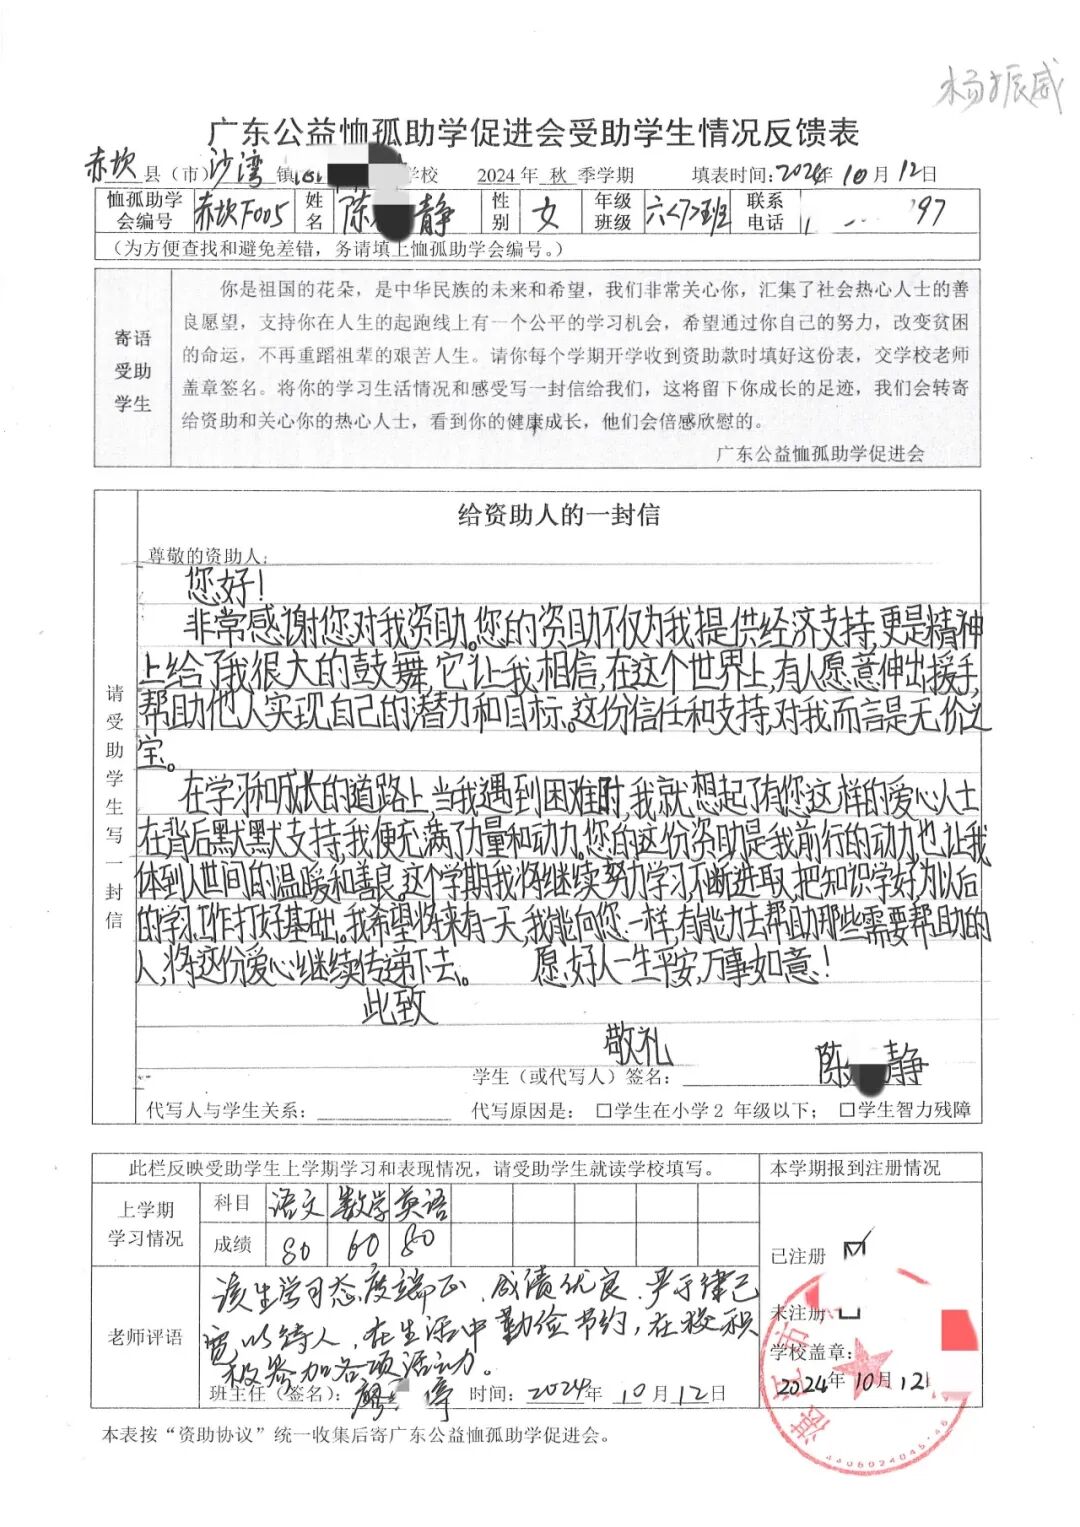 杨振威
广东公益恤孤助学促进会受助学生情况反馈表
赤坎县（市）沙湾镇 学校 2024年 秋 季学期 填表时间：2024年10月12日
恤孤助学会编号 赤坎F005 姓名 陈 静 性别 女 年级班级 六<7>班 联系电话 1 97
（为方便查找和避免差错，务请填上恤孤助学会编号。）
寄语受助学生
你是祖国的花朵，是中华民族的未来和希望，我们非常关心你，汇集了社会热心人士的善
良愿望，支持你在人生的起跑线上有一个公平的学习机会，希望通过你自己的努力，改变贫困
的命运，不再重蹈祖辈的艰苦人生。请你每个学期开学收到资助款时填好这份表，交学校老师
盖章签名。将你的学习生活情况和感受写一封信给我们，这将留下你成长的足迹，我们会转寄
给资助和关心你的热心人士，看到你的健康成长，他们会倍感欣慰的。
广东公益恤孤助学促进会
请受助学生写一封信
给资助人的一封信
尊敬的资助人：
您好！
非常感谢您对我资助。您的资助不仅为我提供经济支持，更是精神
上给了我很大的鼓舞，它让我相信，在这个世界上，有人愿意伸出援手，
帮助他人实现自己的潜力和目标。这份信任和支持，对我而言是无价之
宝。
在学习和成长的道路上，当我遇到困难时，我就想起了有您这样的爱心人士
在背后默默支持，我便充满了力量和动力。您的这份资助是我前行的动力，也让我
体到人世间的温暖和善良。这个学期我将继续努力学习，不断进取，把知识学好，为以后
的学习工作打好基础。我希望将来有一天，我能向您一样，有能力去帮助那些需要帮助的
人，将这份爱心继续传递下去。 愿好人一生平安，万事如意！
此致
敬礼
学生（或代写人）签名： 陈 静
代写人与学生关系： 代写原因是： □学生在小学2 年级以下； □学生智力残障
此栏反映受助学生上学期学习和表现情况，请受助学生就读学校填写。 本学期报到注册情况
上学期学习情况
科目 语文 数学 英语
成绩 80 60 80
已注册 ☑
未注册 □
学校盖章：
2024年10月12日
老师评语
该生学习态度端正、成绩优良，严于律己
宽以待人，在生活中勤俭节约，在校积
极参加各项活动。
班主任（签名）：廖 婷 时间：2024年10月12日
湛江市
4408024045146
本表按“资助协议”统一收集后寄广东公益恤孤助学促进会。